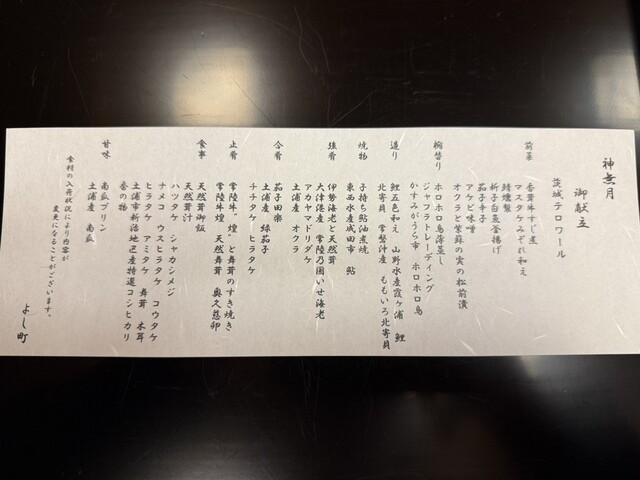 神無月
御献立
茨城テロワール
前菜
香茸牛すじ煮
マスタケみぞれ和え
鯖燻製
新子白蒸釜揚げ
茄子辛子
アケビ味噌
オクラと紫蘇の実の松前漬
椀替り
ホロホロ鳥薄葛し
ジャフラトレーディング
かすみがうら市 ホロホロ鳥
造り
鯉五色和え 山野水産霞ヶ浦 鯉
北寄貝 常磐沖産 ももいろ北寄貝
焼物
子持ち鮎油煮焼
東西水産成田市 鮎
強肴
伊勢海老と天然茸
大津港産 常陸乃国いせ海老
アカヤマドリダケ
土浦産 オクラ
合肴
茄子田楽
土浦産 緑茄子
チチタケ ヒラタケ
止肴
常陸牛“煌”と舞茸のすき焼き
常陸牛“煌” 天然舞茸 奥久慈卵
食事
天然茸御飯
天然茸汁
ハツタケ シャカシメジ
ナメコ ウスヒラタケ コウタケ
ヒラタケ アミタケ 舞茸 木耳
土浦市新治地区産特選コシヒカリ
香の物
甘味
南瓜プリン
土浦産 南瓜
食材の入荷状況により内容が
変更になることがございます。
よし町